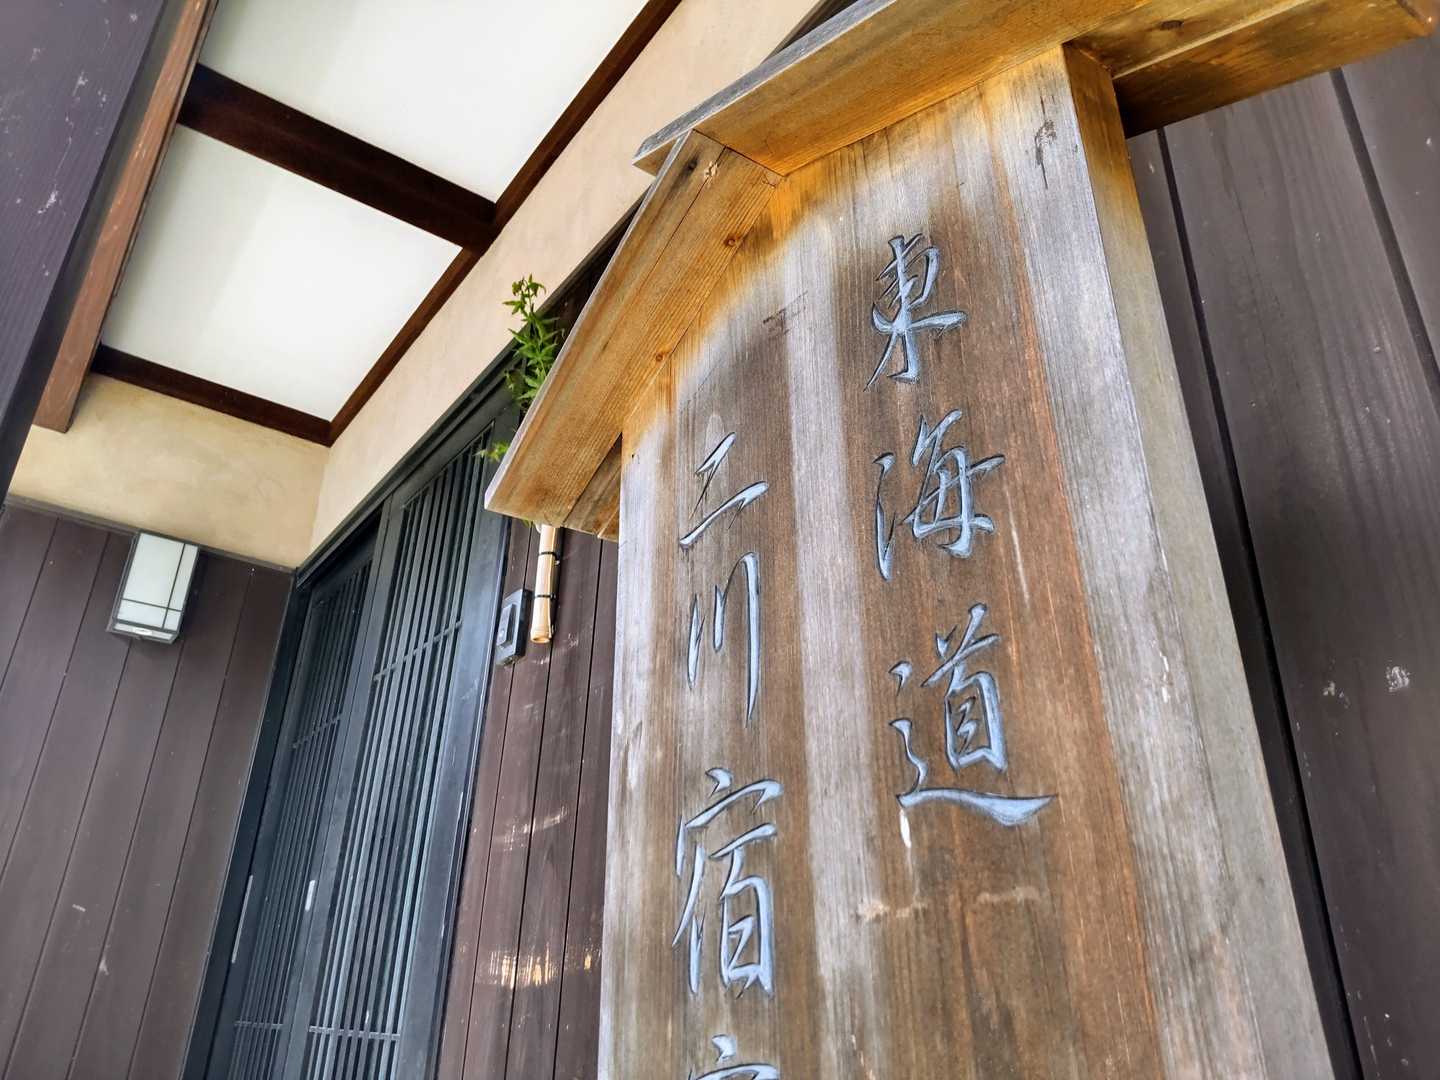 東海道
二川宿